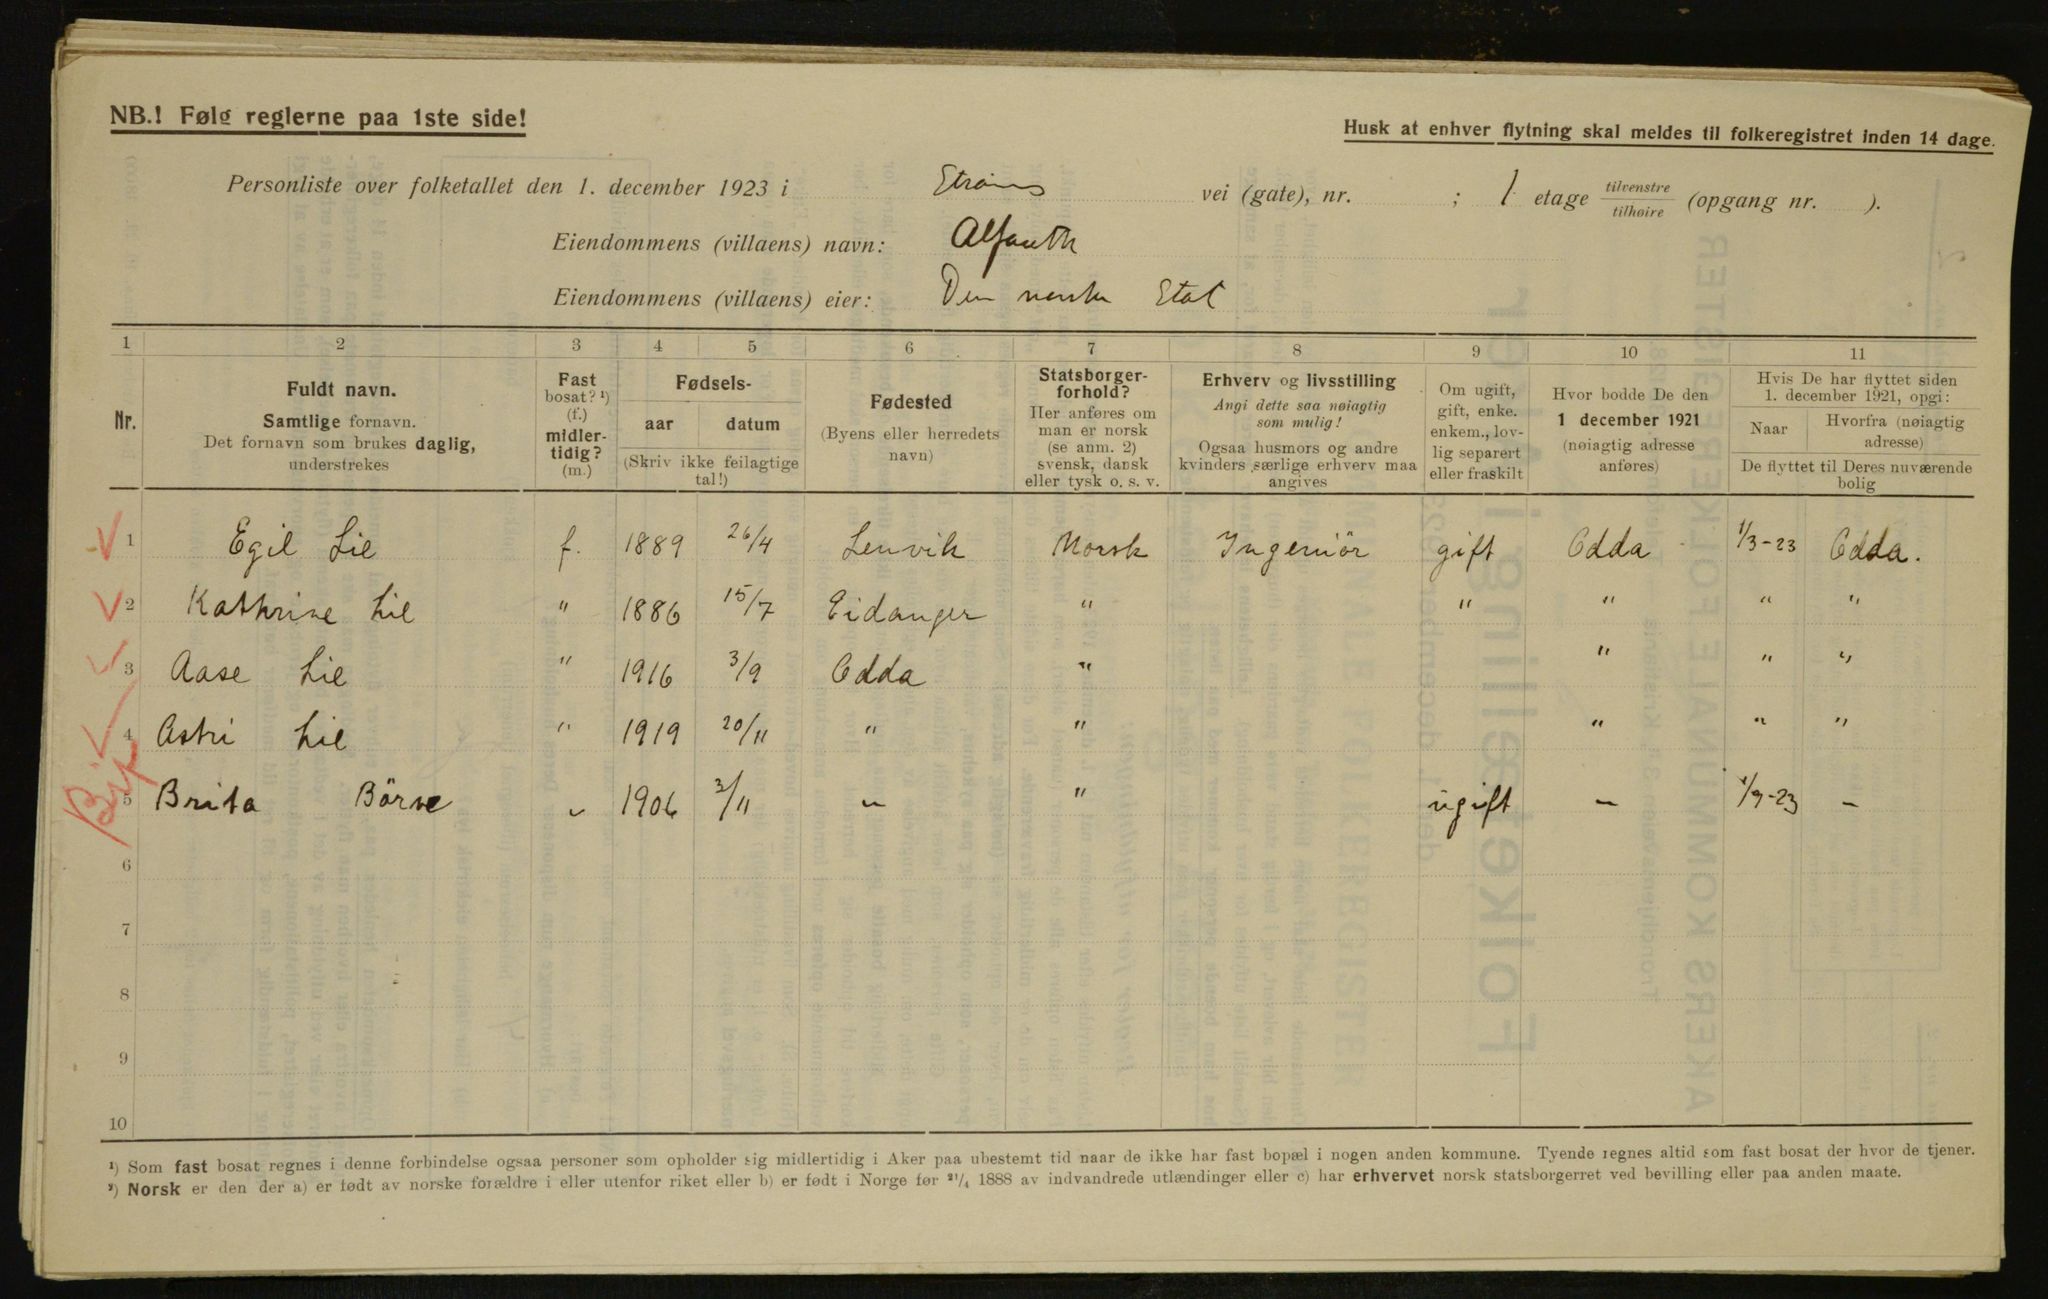 NB.! Følg reglerne paa 1ste side!
Husk at enhver flytning skal meldes til folkeregistret inden 14 dage.
Personliste over folketallet den 1. december 1923 i vei (gate), nr. ; 1 etage tilvenstre / tilhøire (opgang nr. ).
Eiendommens (villaens) navn:
Eiendommens (villaens) eier: Den norske Stat
1 2 3 4 5 6 7 8 9 10 11
Nr.
Fuldt navn.
Samtlige fornavn.
Det fornavn som brukes daglig,
understrekes
Fast
bosat? ¹)
(f.)
midler-
tidig?
(m.)
Fødsels-
aar datum
(Skriv ikke feilagtige
tal!)
Fødested
(Byens eller herredets
navn)
Statsborger-
forhold?
Her anføres om
man er norsk
(se anm. 2)
svensk, dansk
eller tysk o. s. v.
Erhverv og livsstilling
Angi dette saa nøiagtig
som mulig!
Ogsaa husmors og andre
kvinders særlige erhverv maa
angives
Om ugift,
gift, enke.
enkem., lov-
lig separert
eller fraskilt
Hvor bodde De den
1 december 1921
(nøiagtig adresse
anføres)
Hvis De har flyttet siden
1. december 1921, opgi:
Naar Hvorfra (nøiagtig
adresse)
De flyttet til Deres nuværende
bolig
1 Egil Lie f. 1889 26/4 Lenvik Norsk Ingeniör gift Odda 1/3-23 Odda.
2 Kathrine Lie " 1886 15/7 Eidanger " " " " "
3 Aase Lie " 1916 3/9 Odda " " " "
4 Astri Lie " 1919 20/11 " " " " "
5 Brita Börve " 1906 3/11 " " ugift " 1/9-23 "
6
7
8
9
10
¹) Som fast bosat regnes i denne forbindelse ogsaa personer som opholder sig midlertidig i Aker paa ubestemt tid naar de ikke har fast bopæl i nogen anden kommune. Tyende regnes altid som fast bosat der hvor de tjener.
²) Norsk er den der a) er født av norske forældre i eller utenfor riket eller b) er født i Norge før 21/4 1888 av indvandrede utlændinger eller c) har erhvervet norsk statsborgerret ved bevilling eller paa anden maate.